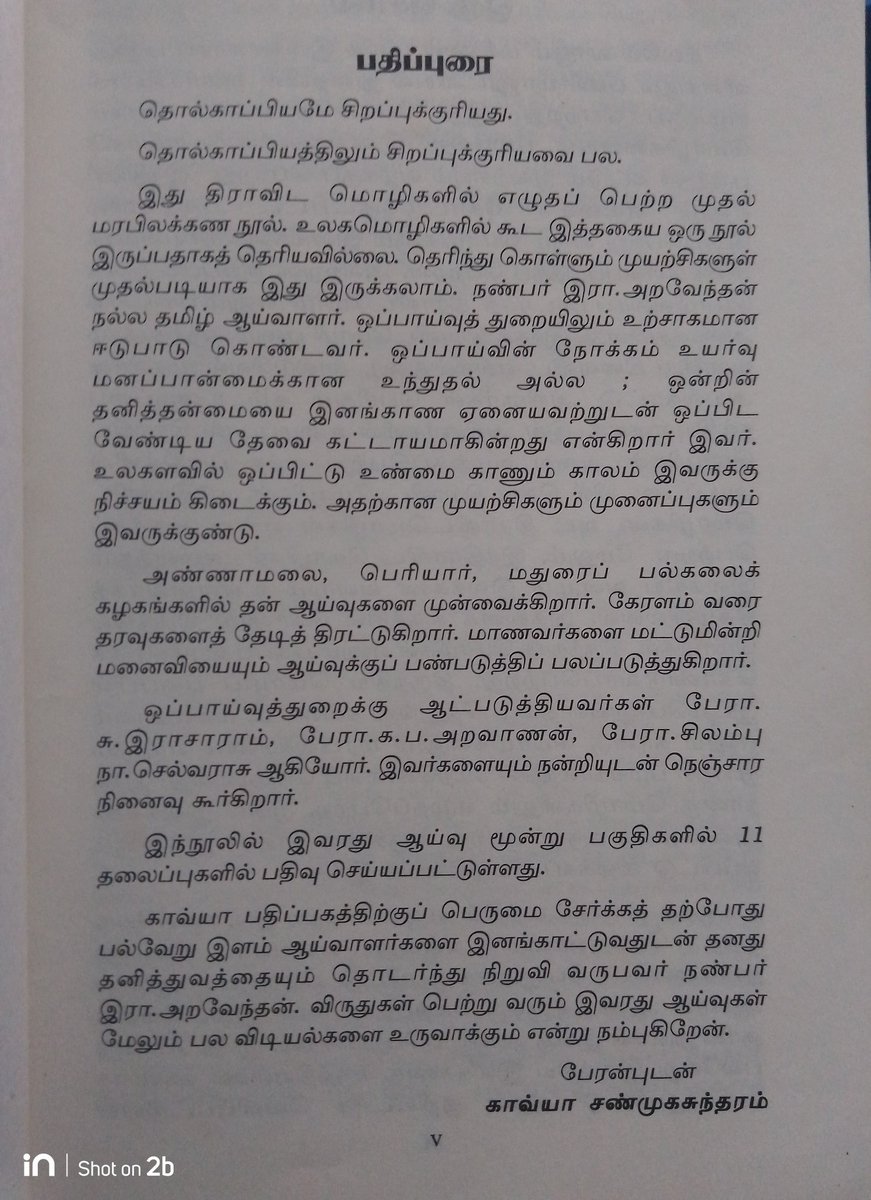 பதிப்புரை
தொல்காப்பியமே சிறப்புக்குரியது.
தொல்காப்பியத்திலும் சிறப்புக்குரியவை பல.
இது திராவிட மொழிகளில் எழுதப் பெற்ற முதல்
மரபிலக்கண நூல். உலகமொழிகளில் கூட இத்தகைய ஒரு நூல்
இருப்பதாகத் தெரியவில்லை. தெரிந்து கொள்ளும் முயற்சிகளுள்
முதல்படியாக இது இருக்கலாம். நண்பர் இரா.அறவேந்தன்
நல்ல தமிழ் ஆய்வாளர். ஒப்பாய்வுத் துறையிலும் உற்சாகமான
ஈடுபாடு கொண்டவர். ஒப்பாய்வின் நோக்கம் உயர்வு
மனப்பான்மைக்கான உந்துதல் அல்ல ; ஒன்றின்
தனித்தன்மையை இனங்காண ஏனையவற்றுடன் ஒப்பிட
வேண்டிய தேவை கட்டாயமாகின்றது என்கிறார் இவர்.
உலகளவில் ஒப்பிட்டு உண்மை காணும் காலம் இவருக்கு
நிச்சயம் கிடைக்கும். அதற்கான முயற்சிகளும் முனைப்புகளும்
இவருக்குண்டு.
அண்ணாமலை, பெரியார், மதுரைப் பல்கலைக்
கழகங்களில் தன் ஆய்வுகளை முன்வைக்கிறார். கேரளம் வரை
தரவுகளைத் தேடித் திரட்டுகிறார். மாணவர்களை மட்டுமின்றி
மனைவியையும் ஆய்வுக்குப் பண்படுத்திப் பலப்படுத்துகிறார்.
ஒப்பாய்வுத்துறைக்கு ஆட்படுத்தியவர்கள் பேரா.
சு.இராசாராம், பேரா.க.ப.அறவாணன், பேரா.சிலம்பு
நா.செல்வராசு ஆகியோர். இவர்களையும் நன்றியுடன் நெஞ்சார
நினைவு கூர்கிறார்.
இந்நூலில் இவரது ஆய்வு மூன்று பகுதிகளில் 11
தலைப்புகளில் பதிவு செய்யப்பட்டுள்ளது.
காவ்யா பதிப்பகத்திற்குப் பெருமை சேர்க்கத் தற்போது
பல்வேறு இளம் ஆய்வாளர்களை இனங்காட்டுவதுடன் தனது
தனித்துவத்தையும் தொடர்ந்து நிறுவி வருபவர் நண்பர்
இரா.அறவேந்தன். விருதுகள் பெற்று வரும் இவரது ஆய்வுகள்
மேலும் பல விடியல்களை உருவாக்கும் என்று நம்புகிறேன்.
பேரன்புடன்
காவ்யா சண்முகசுந்தரம்
v
in | Shot on 2b